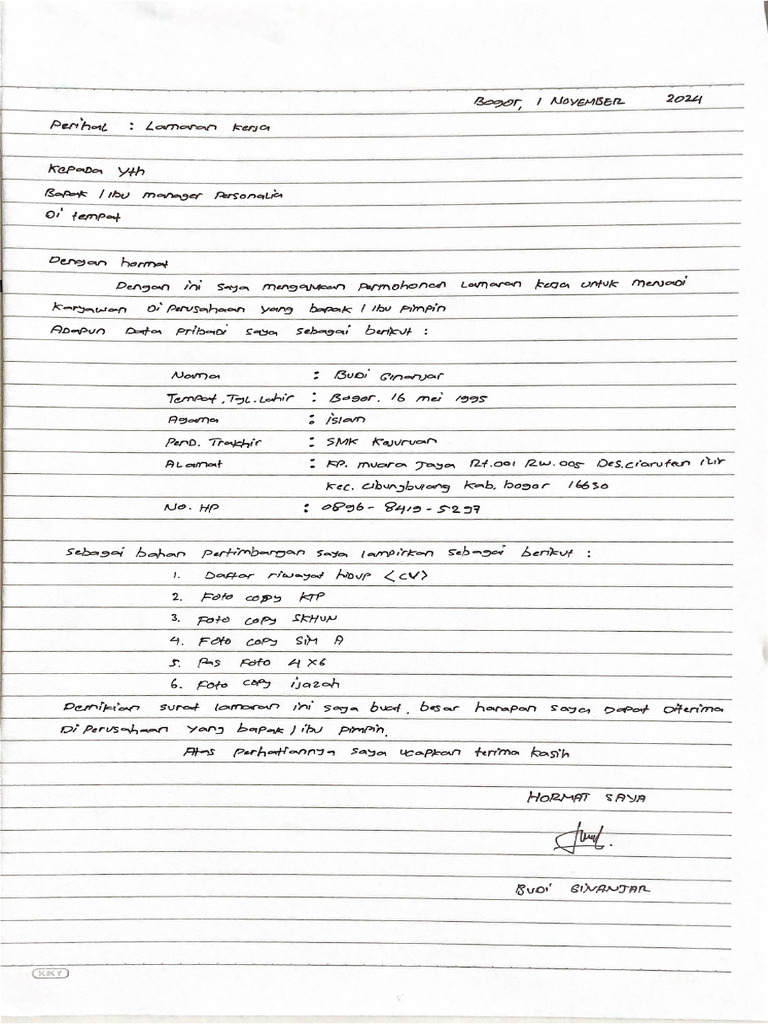 Bogor, 1 NOVEMBER 2024
Perihal : Lamaran Kerja
Kepada Yth
Bapak / ibu manager Personalia
Di tempat
Dengan hormat
Dengan ini saya mengajukan Permohonan Lamaran kerja untuk menjadi
Karyawan Di Perusahaan yang bapak / ibu Pimpin
Adapun Data Pribadi saya sebagai berikut :
Nama : BUDi Ginanjar
Tempat, Tgl. Lahir : Bogor. 16 mei 1995
Agama : islam
Pend. Trakhir : SMK Kejuruan
ALamat : KP. muara Jaya Rt.001 RW.005 Des.ciaruten ilir
Kec. Cibungbulang Kab. bogor 16630
No. HP : 0896-8419-5297
Sebagai bahan Pertimbangan saya lampirkan sebagai berikut :
1. Daftar riwayat hiDUP <CV>
2. Foto copy KTP
3. Foto copy SKHUN
4. Foto copy SiM A
5. Pas Foto 4x6
6. Foto copy ijazah
Demikian surat lamaran ini saya buat. besar harapan saya Dapat Diterima
Di Perusahaan yang bapak / ibu Pimpin.
Atas Perhatiannya saya ucapkan terima kasih
HORMAT SAYA
BUDi GINANJAR
KKY